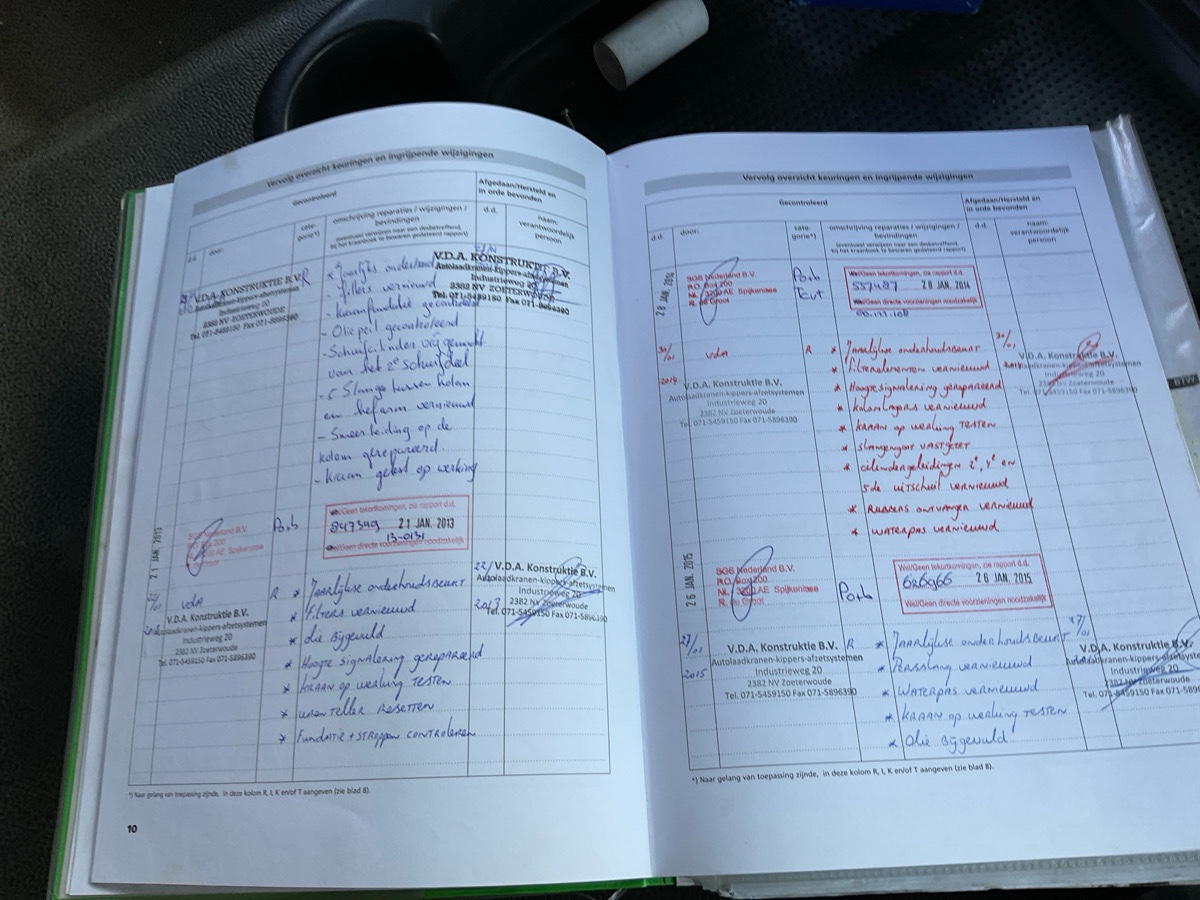 Vervolg overzicht keuringen en ingrijpende wijzigingen
Gecontroleerd
Afgedaan/Hersteld en
in orde bevonden
d.d.
door:
cate-
gorie*)
omschrijving reparaties / wijzigingen /
bevindingen
(eventueel verwijzen naar een desbetreffend,
bij het kraanboek te bewaren gedateerd rapport)
d.d.
naam:
verantwoordelijk
persoon
V.D.A. KONSTRUKTIE B.V.
Autolaadkranen-kippers-afzetsystemen
Industrieweg 20
2382 NV ZOETERWOUDE
Tel. 071-5459150 Fax 071-5896390
R
* Jaarlijks onderhoud
- filters vernieuwd
- kraanfundatie gecontroleerd
- Olie peil gecontroleerd
- Schuifcilinder vrij gemaakt
van het 2e Schuifdeel
- 5 Slangen tussen kolom
en hefarm vernieuwd
- Smeerleiding op de
kolom gerepareerd.
- kraan getest op werking
V.D.A. KONSTRUKTIE B.V.
Autolaadkranen-kippers-afzetsystemen
Industrieweg 20
2382 NV ZOETERWOUDE
Tel. 071-5459150 Fax 071-5896390
21 JAN. 2013
SGS Nederland B.V.
P.O. Box 200
NL 3200 AE Spijkenisse
R. de Groot
Wel/Geen tekortkomingen, zie rapport d.d.
847349 21 JAN. 2013
13-0131
Wel/Geen directe voorzieningen noodzakelijk
22/01
vdA
R
V.D.A. Konstruktie B.V.
Autolaadkranen-kippers-afzetsystemen
Industrieweg 20
2382 NV Zoeterwoude
Tel. 071-5459150 Fax 071-5896390
* Jaarlijkse onderhoudsbeurt
* filters vernieuwd
* olie bijgevuld
* Hoogte signalering gerepareerd
* KRAAN op werking TESTEN
* uren Teller Resetten
* Fundatie + stroppen controleren
22/
2013
V.D.A. Konstruktie B.V.
Autolaadkranen-kippers-afzetsystemen
Industrieweg 20
2382 NV Zoeterwoude
Tel. 071-5459150 Fax 071-5896390
*) Naar gelang van toepassing zijnde, in deze kolom R, I, K en/of T aangeven (zie blad 8).
10
Vervolg overzicht keuringen en ingrijpende wijzigingen
Gecontroleerd
Afgedaan/Hersteld en
in orde bevonden
d.d.
door:
cate-
gorie*)
omschrijving reparaties / wijzigingen /
bevindingen
(eventueel verwijzen naar een desbetreffend,
bij het kraanboek te bewaren gedateerd rapport)
d.d.
naam:
verantwoordelijk
persoon
28 JAN. 2014
SGS Nederland B.V.
P.O. Box 200
NL 3200 AE Spijkenisse
R. de Groot
Wel/Geen tekortkomingen, zie rapport d.d.
557487 28 JAN. 2014
Wel/Geen directe voorzieningen noodzakelijk
30/01
2014
vdA
R
V.D.A. Konstruktie B.V.
Autolaadkranen-kippers-afzetsystemen
Industrieweg 20
2382 NV Zoeterwoude
Tel. 071-5459150 Fax 071-5896390
* Jaarlijkse onderhoudsbeurt
* Filterelementen vernieuwd
* Hoogtesignalering gerepareerd
* kolomlagers vernieuwd
* KRAAN op werking TESTEN
* slangengoot VASTgezet
* cilindergeleidingen 2e, 4e en
5de uitschuif vernieuwd
* Rubbers ontvangen vernieuwd
* WATERPAS vernieuwd
30/01
2014
V.D.A. Konstruktie B.V.
Autolaadkranen-kippers-afzetsystemen
Industrieweg 20
2382 NV Zoeterwoude
Tel. 071-5459150 Fax 071-5896390
26 JAN. 2015
SGS Nederland B.V.
P.O. Box 200
NL 3200 AE Spijkenisse
R. de Groot
Wel/Geen tekortkomingen, zie rapport d.d.
626966 26 JAN. 2015
Wel/Geen directe voorzieningen noodzakelijk
27/01
2015
V.D.A. Konstruktie B.V.
Autolaadkranen-kippers-afzetsystemen
Industrieweg 20
2382 NV Zoeterwoude
Tel. 071-5459150 Fax 071-5896390
R
* Jaarlijkse onderhoudsbeurt
* Persslang vernieuwd
* WATERPAS vernieuwd
* KRAAN op werking TESTEN
* Olie Bijgevuld
27/01
V.D.A. Konstruktie B.V.
Autolaadkranen-kippers-afzetsystemen
Industrieweg 20
2382 NV Zoeterwoude
Tel. 071-5459150 Fax 071-5896390
*) Naar gelang van toepassing zijnde, in deze kolom R, I, K en/of T aangeven (zie blad 8).